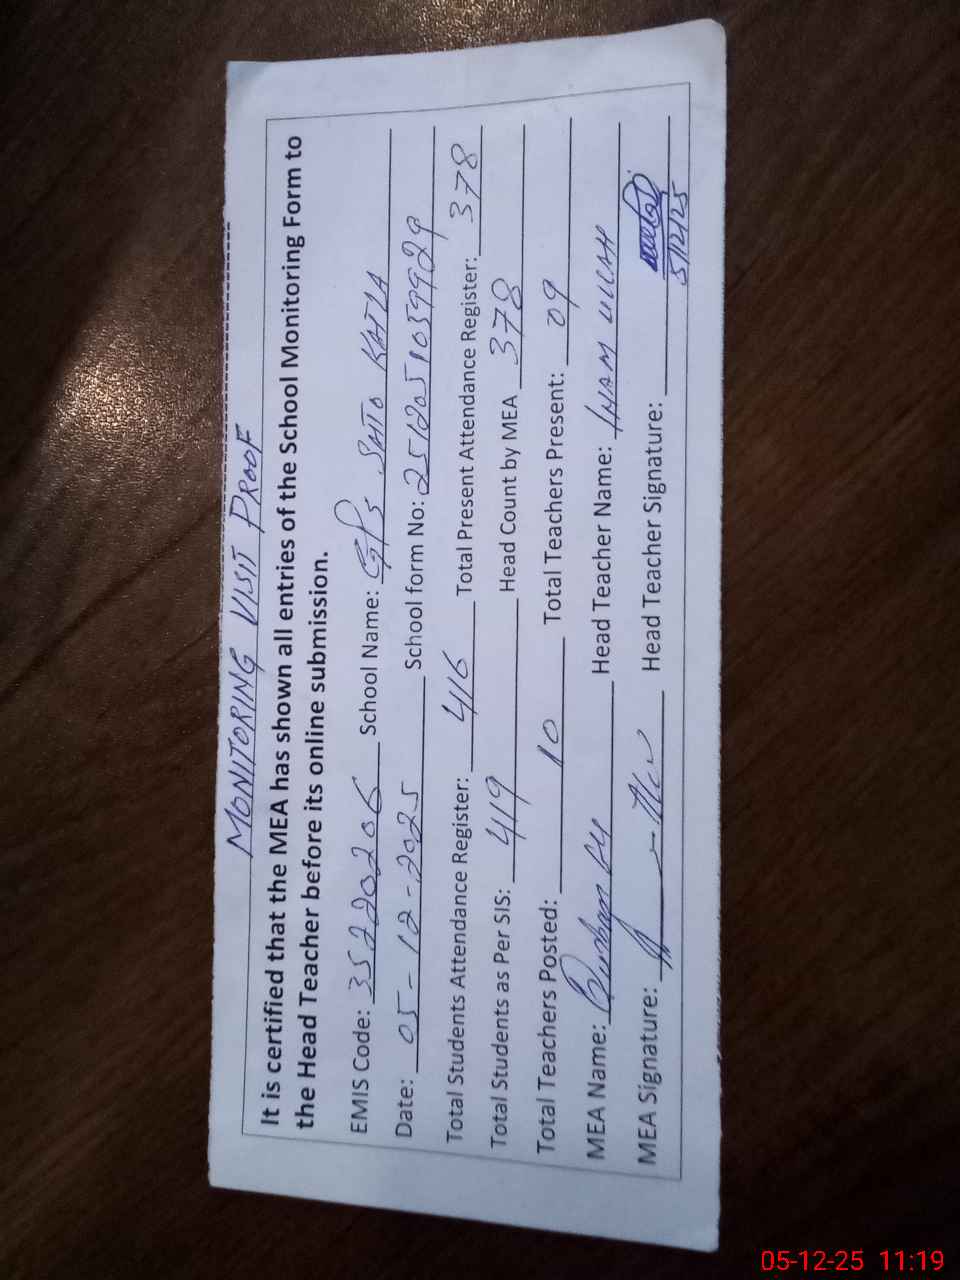 MONITORING VISIT PROOF
It is certified that the MEA has shown all entries of the School Monitoring Form to
the Head Teacher before its online submission.
EMIS Code: 35220206 School Name: GPS SHTO KATLA
Date: 05-12-2025 School form No: 2512051059929
Total Students Attendance Register: 416 Total Present Attendance Register: 378
Total Students as Per SIS: 419 Head Count by MEA 378
Total Teachers Posted: 10 Total Teachers Present: 09
MEA Name: Head Teacher Name: INAM ULLAH
MEA Signature: Head Teacher Signature:
5/12/25
05-12-25 11:19